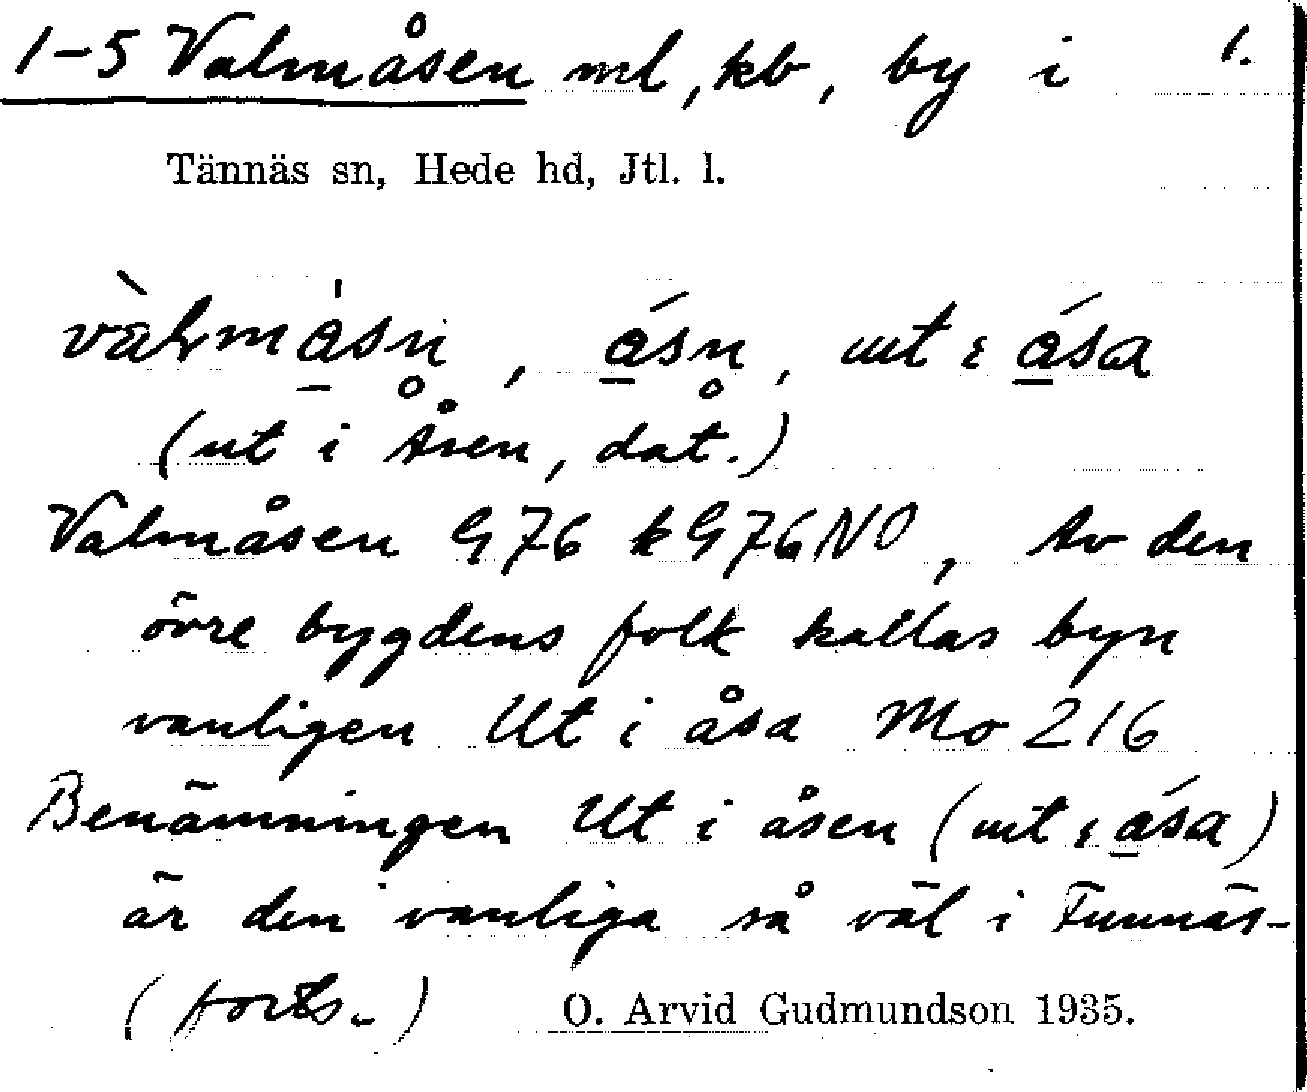 1-5 Valmåsen ml, kb, by i 1.
Tännäs sn, Hede hd, Jtl. l.
ásn, ut i ása
(ut i Åsen, dat.)
Valmåsen G76 kG76NO, Av den
övre bygdens folk kallas byn
vanligen Ut i åsa Mo 216
Benämningen Ut i åsen (ut i ása)
är den vanliga så väl i Funnäs-
(forts.) O. Arvid Gudmundson 1935.